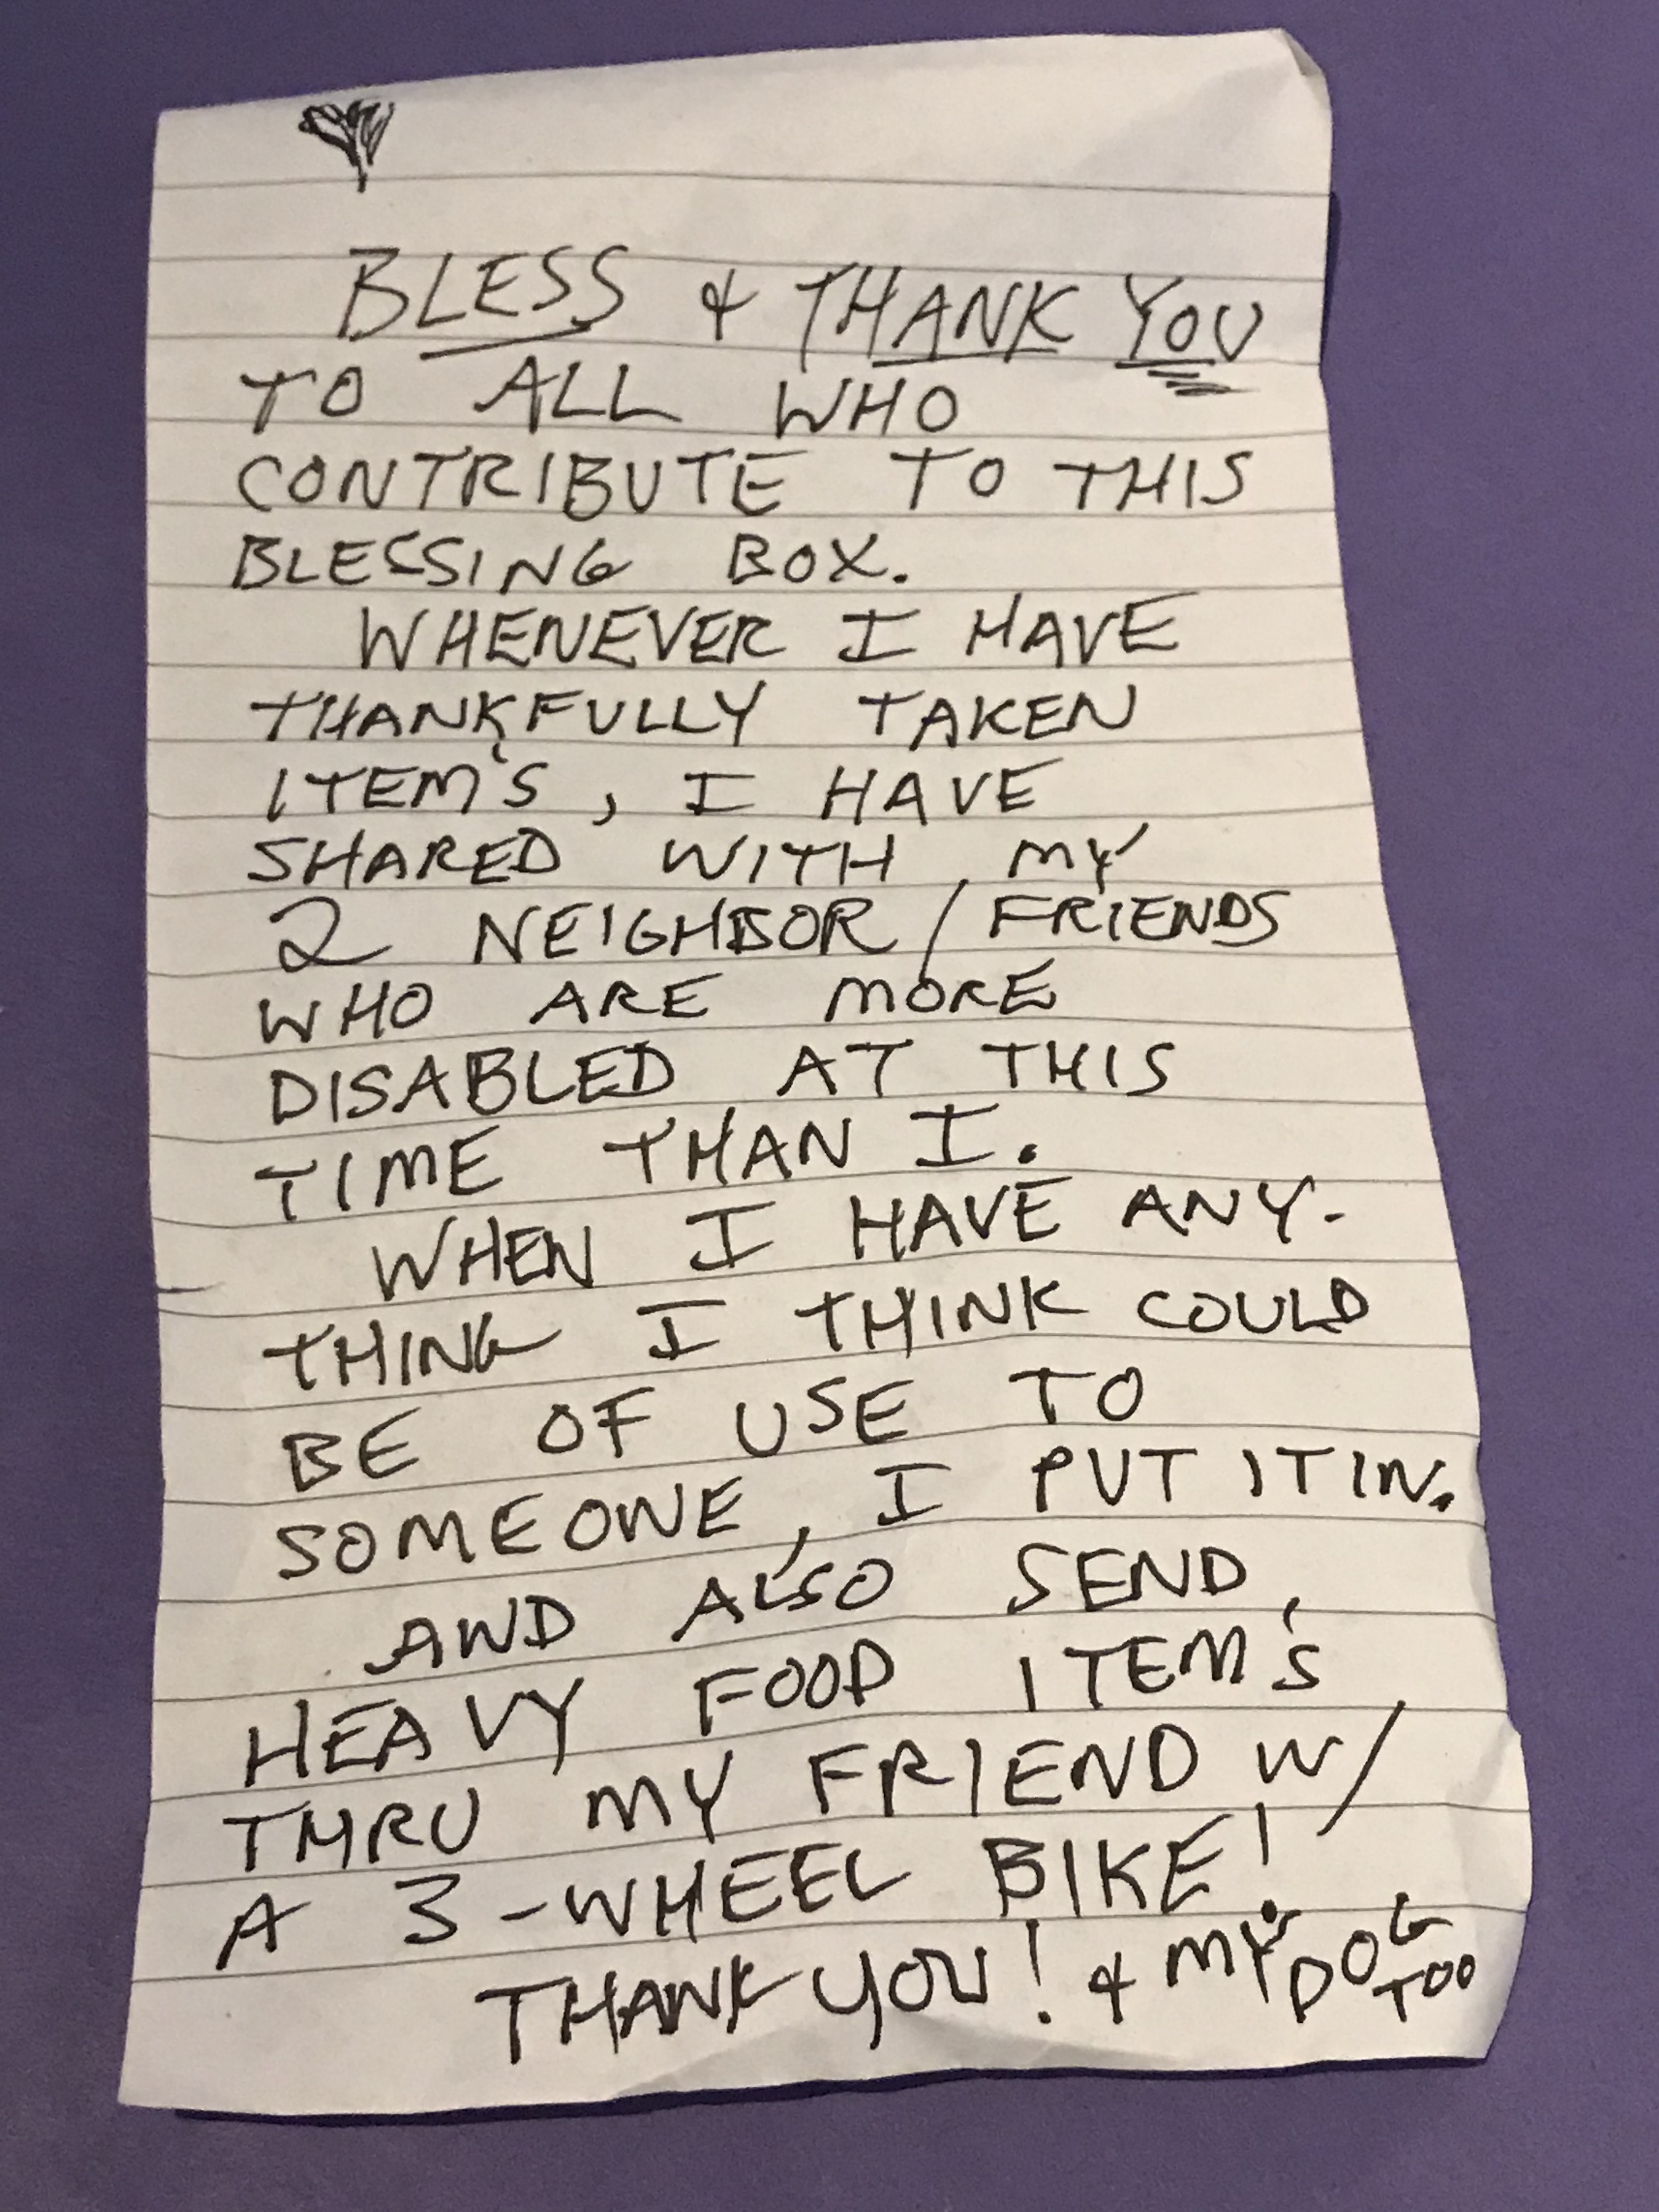 BLESS & THANK YOU
TO ALL WHO
CONTRIBUTE TO THIS
BLESSING BOX.
WHENEVER I HAVE
THANKFULLY TAKEN
ITEM'S, I HAVE
SHARED WITH MY
2 NEIGHBOR/FRIENDS
WHO ARE MORE
DISABLED AT THIS
TIME THAN I.
WHEN I HAVE ANY-
THING I THINK COULD
BE OF USE TO
SOMEONE, I PUT IT IN.
AND ALSO SEND
HEAVY FOOD ITEM'S
THRU MY FRIEND W/
A 3-WHEEL BIKE!
THANK YOU! & MY DOG
TOO